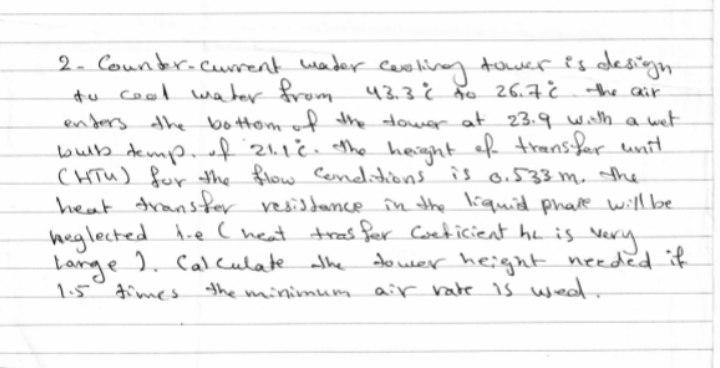 2- Counter-current water cooling tower is design
to cool water from 43.3 c̊ to 26.7 c̊. the air
enters the bottom of the tower at 23.9 with a wet
bulb temp. of 21.1 c̊. the height of transfer unit
(HTU) for the flow conditions is 0.533 m. the
heat transfer resistance in the liquid phase will be
neglected i.e ( heat trasfer coeficient hL is very
large ). Calculate the tower height needed if
1.5 times the minimum air rate is used.